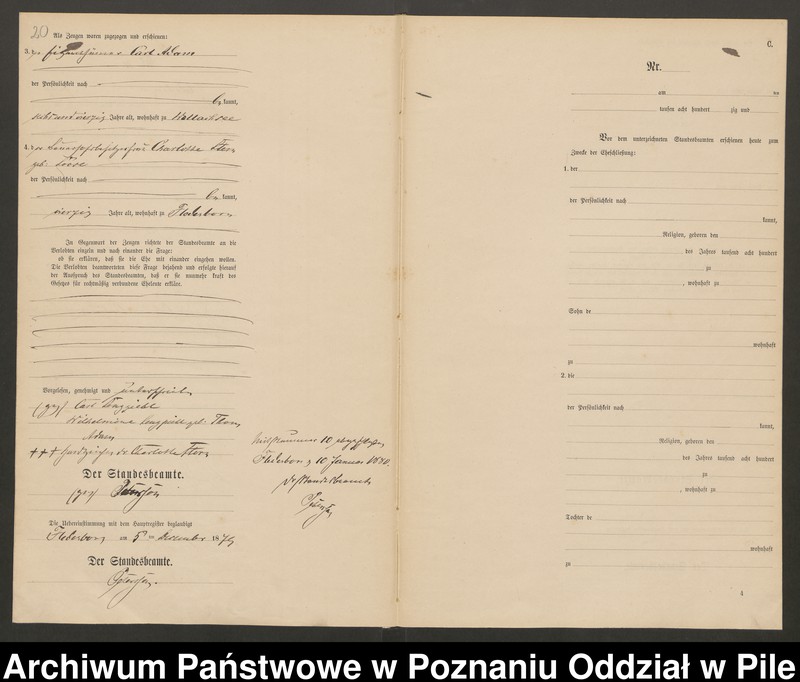 20
Als Zeugen waren zugezogen und erschienen:
3. der Eigenthümer Carl Adam
der Persönlichkeit nach
be kannt,
Jahre alt, wohnhaft zu Wallachsee
4. Charlotte
geb.
der Persönlichkeit nach
be kannt,
vierzig Jahre alt, wohnhaft zu Flederborn
In Gegenwart der Zeugen richtete der Standesbeamte an die
Verlobten einzeln und nach einander die Frage:
ob sie erklären, daß sie die Ehe mit einander eingehen wollen.
Die Verlobten beantworteten diese Frage bejahend und erfolgte hierauf
der Ausspruch des Standesbeamten, daß er sie nunmehr kraft des
Gesetzes für rechtmäßig verbundene Eheleute erkläre.
Vorgelesen, genehmigt und unterschrieben
(gez) Carl
Wilhelmine geb.
Adam
+++ Handzeichen der Charlotte
Der Standesbeamte.
(gez) Petersson
Die Uebereinstimmung mit dem Hauptregister beglaubigt
Flederborn am 5ten Dezember 1879
Der Standesbeamte.
Petersson.
10 abgeschlossen
Flederborn, 10 Januar 1880.
Der Standesbeamte
Petersson
C.
Nr.
am ten
tausend acht hundert zig und
Vor dem unterzeichneten Standesbeamten erschienen heute zum
Zwecke der Eheschließung:
1. der
der Persönlichkeit nach
kannt,
Religion, geboren den
des Jahres tausend acht hundert
zu
, wohnhaft zu
Sohn de
wohnhaft
zu
2. die
der Persönlichkeit nach
kannt,
Religion, geboren den
des Jahres tausend acht hundert
zu
, wohnhaft zu
Tochter de
wohnhaft
zu
Archiwum Państwowe w Poznaniu Oddział w Pile